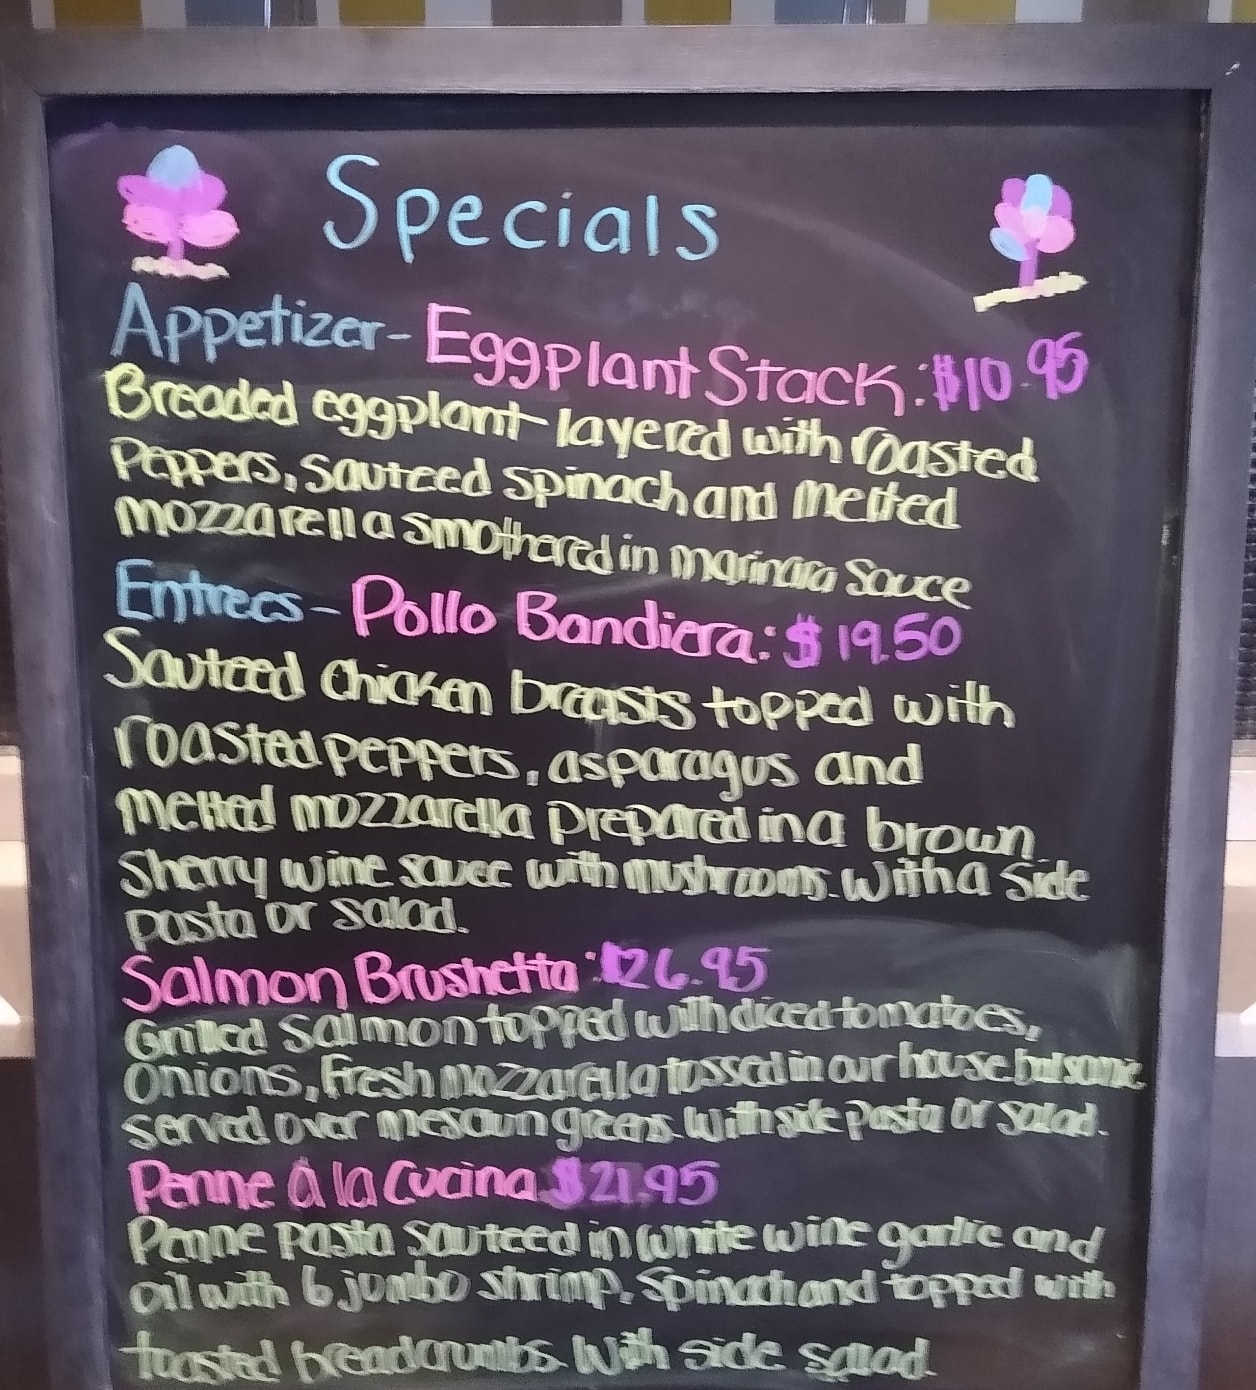 Specials
Appetizer- Eggplant Stack: $10.95
Breaded eggplant layered with roasted
Peppers, Sauteed spinach and melted
mozzarella smothered in marinara Sauce
Entrees - Pollo Bandiera: $19.50
Sauteed Chicken breasts topped with
roasted peppers, asparagus and
melted mozzarella prepared in a brown
Sherry wine sauce with mushrooms. With a side
pasta or salad.
Salmon Brushetta: $26.95
Grilled Salmon topped with diced tomatoes,
Onions, Fresh mozzarella tossed in our house balsamic
served over mesclun greens. With side pasta or salad.
Penne á la Cucina $21.95
Penne pasta sauteed in white wine garlic and
oil with 6 jumbo shrimp, Spinach and topped with
toasted breadcrumbs. With side salad.